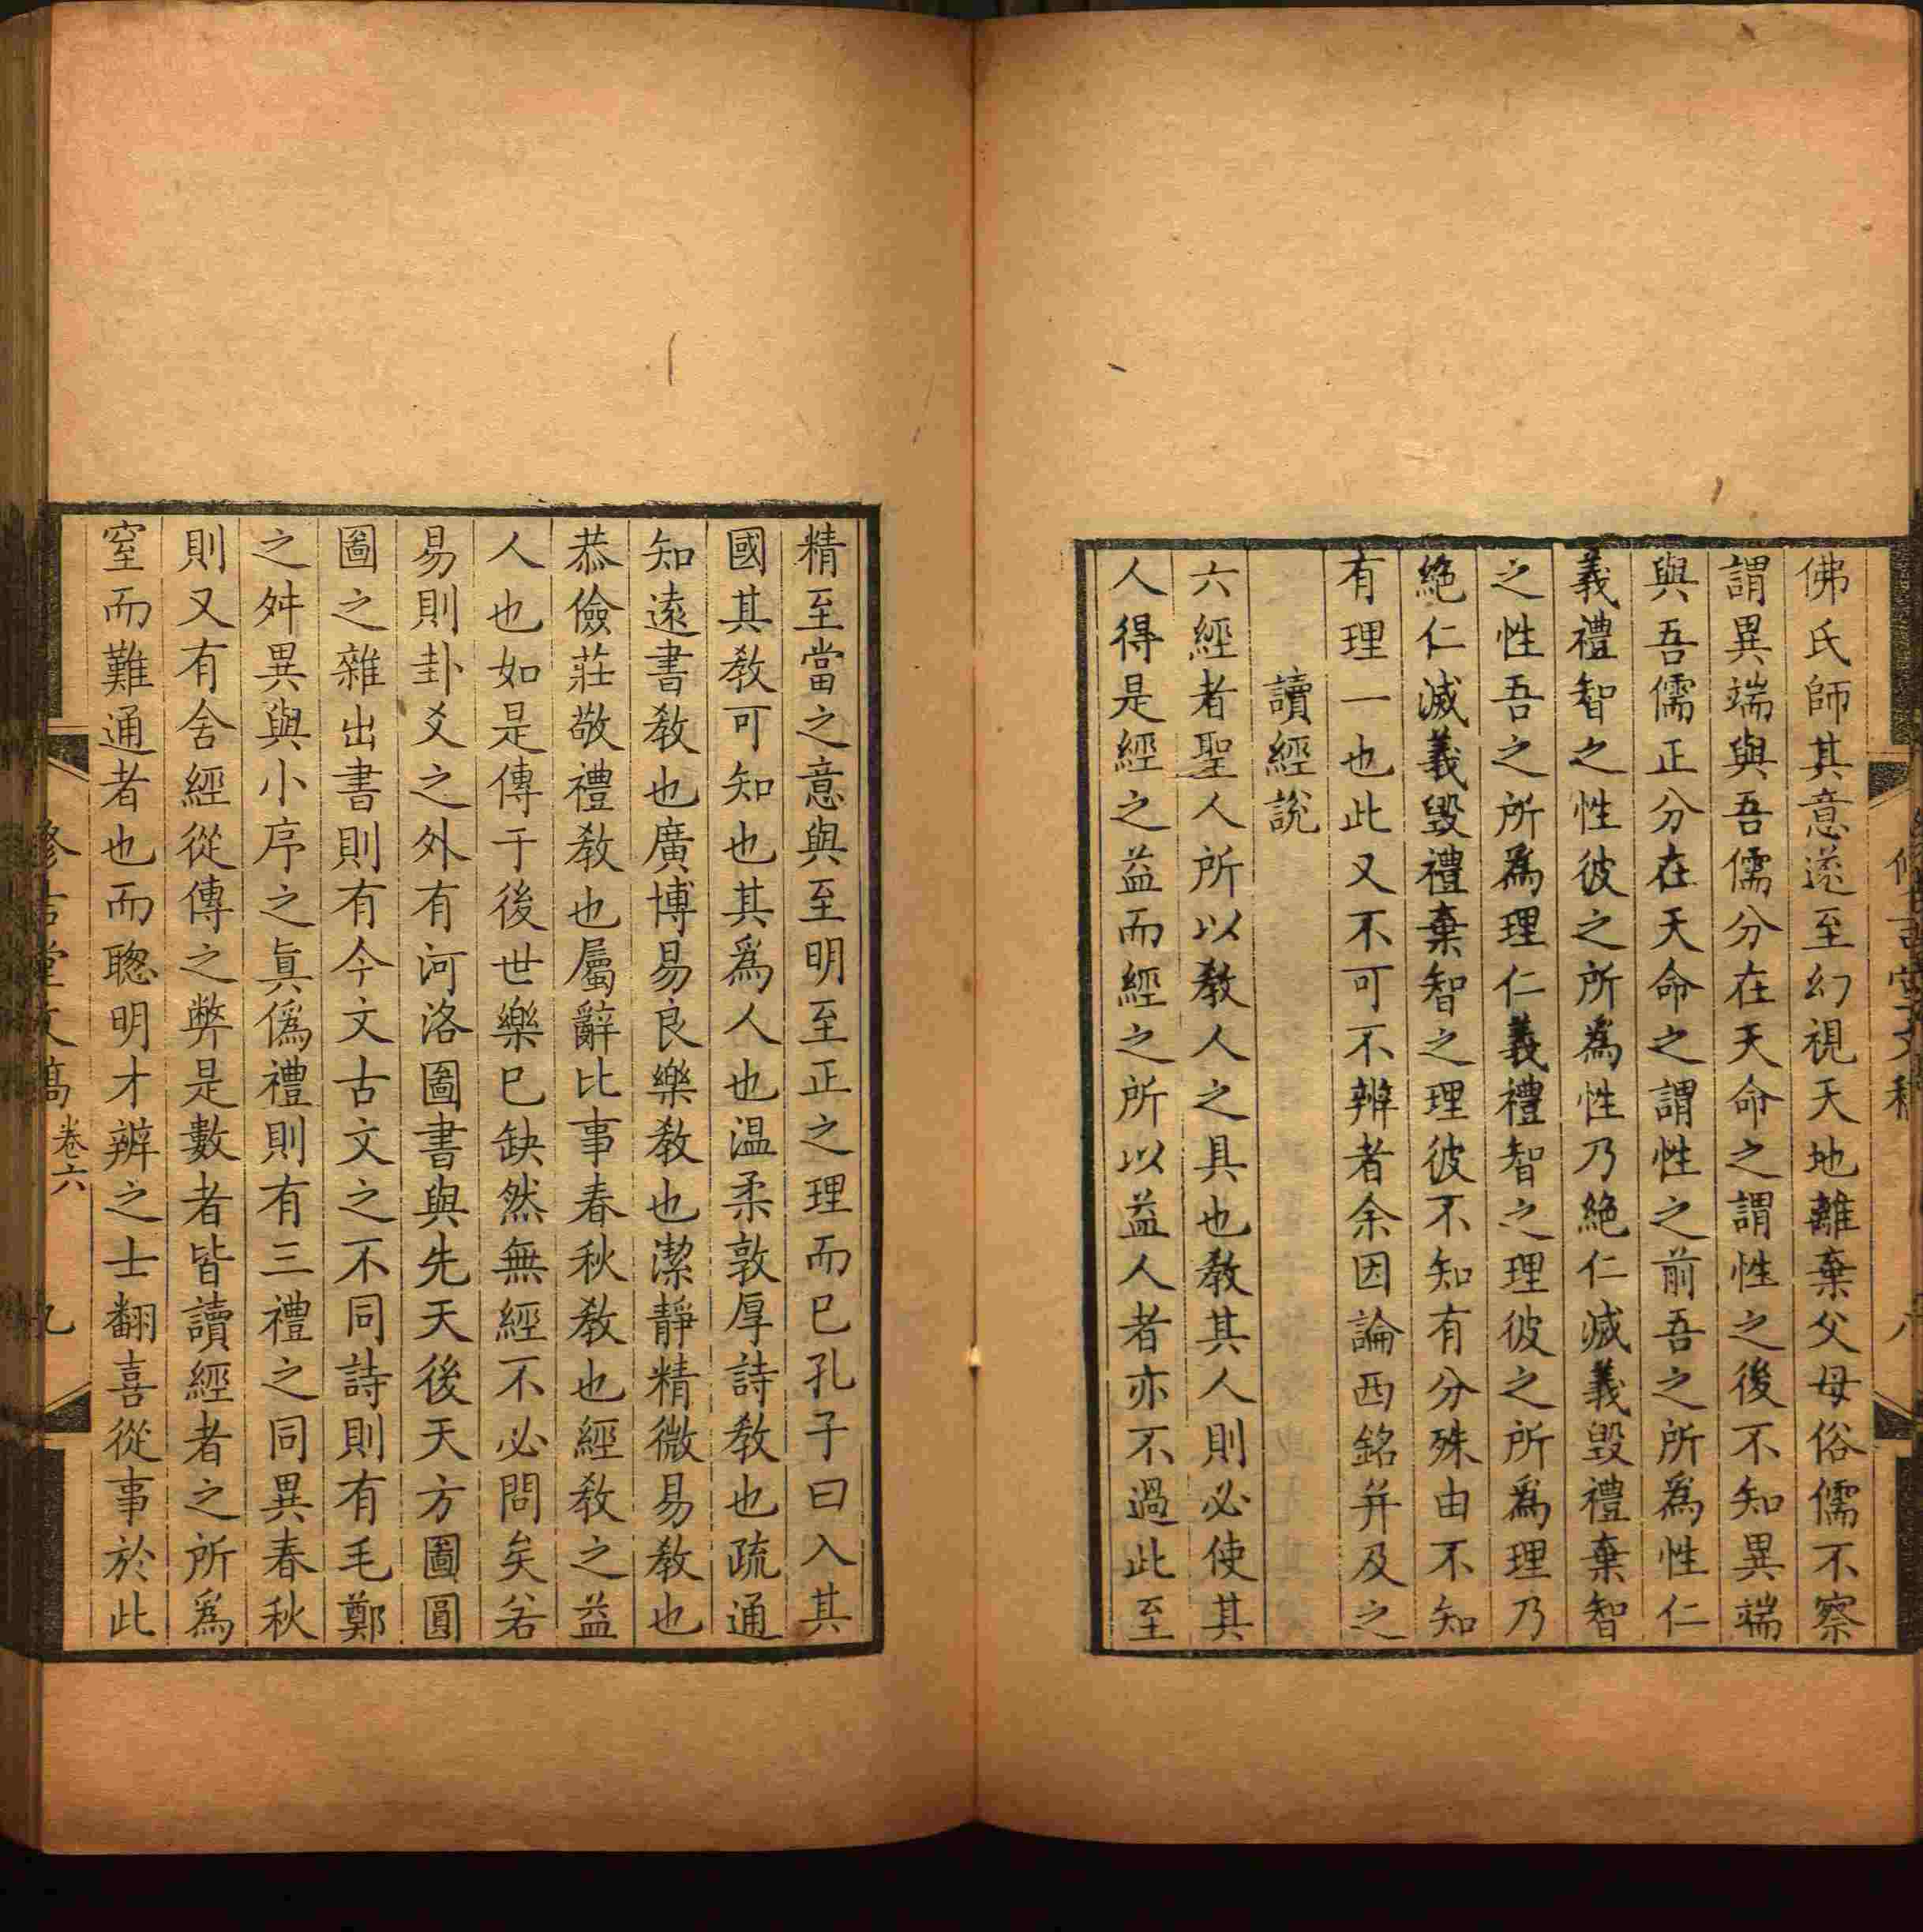 佛氏師其意遂至幻視天地離棄父母俗儒不察
謂異端與吾儒分在天命之謂性之後不知異端
與吾儒正分在天命之謂性之前吾之所爲性仁
義禮智之性彼之所爲性乃絶仁滅義毁禮棄智
之性吾之所爲理仁義禮智之理彼之所爲理乃
絶仁滅義毁禮棄智之理彼不知有分殊由不知
有理一也此又不可不辨者余因論西銘并及之
讀經說
六經者聖人所以教人之具也教其人則必使其
人得是經之益而經之所以益人者亦不過此至
精至當之意與至明至正之理而已孔子曰入其
國其教可知也其爲人也温柔敦厚詩教也疏通
知遠書教也廣博易良樂教也潔靜精微易教也
恭儉莊敬禮教也屬辭比事春秋教也經教之益
人也如是傳于後世樂已缺然無經不必問矣若
易則卦爻之外有河洛圖書與先天後天方圖圓
圖之雜出書則有今文古文之不同詩則有毛鄭
之舛異與小序之真僞禮則有三禮之同異春秋
則又有舍經從傳之弊是數者皆讀經者之所爲
窒而難通者也而聰明才辨之士翻喜從事於此
修吉堂文稿 卷六 九